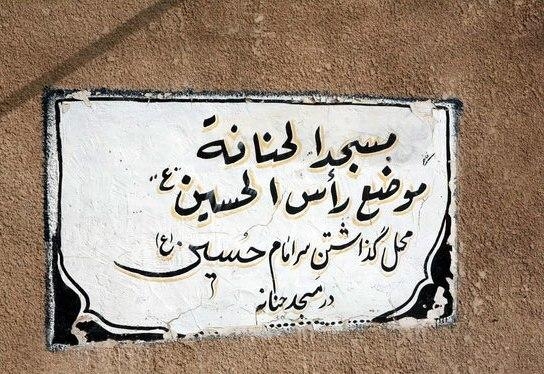 مسجد الحنانة
موضع رأس الحسين "ع"
محل گذاشتن سر امام حسین (ع)
در مسجد حنانه